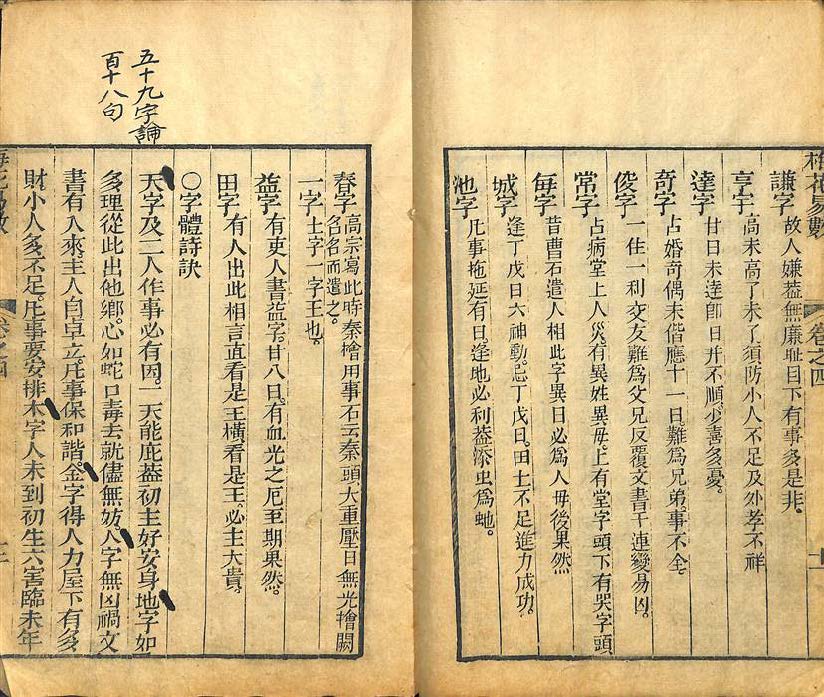 梅花易數
卷之四
謙字 故人嫌葢無廉耻目下有事多是非。
亨字 高未高了未了須防小人不足及外孝不祥
達字 廿日未達卽日并不順少喜多憂。
奇字 占婚奇偶未偕應十一日難爲兄弟。事不全。
俊字 一住一利交友難爲父兄反覆文書干連變易凶。
常字 占病堂上人災。有異姓異毋。上有堂字頭下有哭字頭
每字 昔曹石遣人相此字異日必爲人毋後果然
城字 逢丁戊日六神動。忌丁戊日。田土不足進力成功。
池字 凡事拖延有日。逢地必利葢添虫爲虵。
五十九字論
百十八句
春字 高宗寫此時秦檜用事石云秦頭大重壓日無光檜闕
名名而遣之。
一字 土字一字王也。
益字 有吏人書益字。廿八日。有血光之厄至期果然。
田字 有人出此相言直看是王橫看是王。必主大貴。
○字體詩訣
天字及二人作事必有因。一天能庇葢初主好安身地字如
多理從此出他鄉。心如蛇口毒去就儘無妨。人字無凶禍文
書有入來。主人自卓立。凡事保和諧。金字得人力屋下有多
財小人多不足。凡事要安排木字人未到初生六害臨未年
卷之四